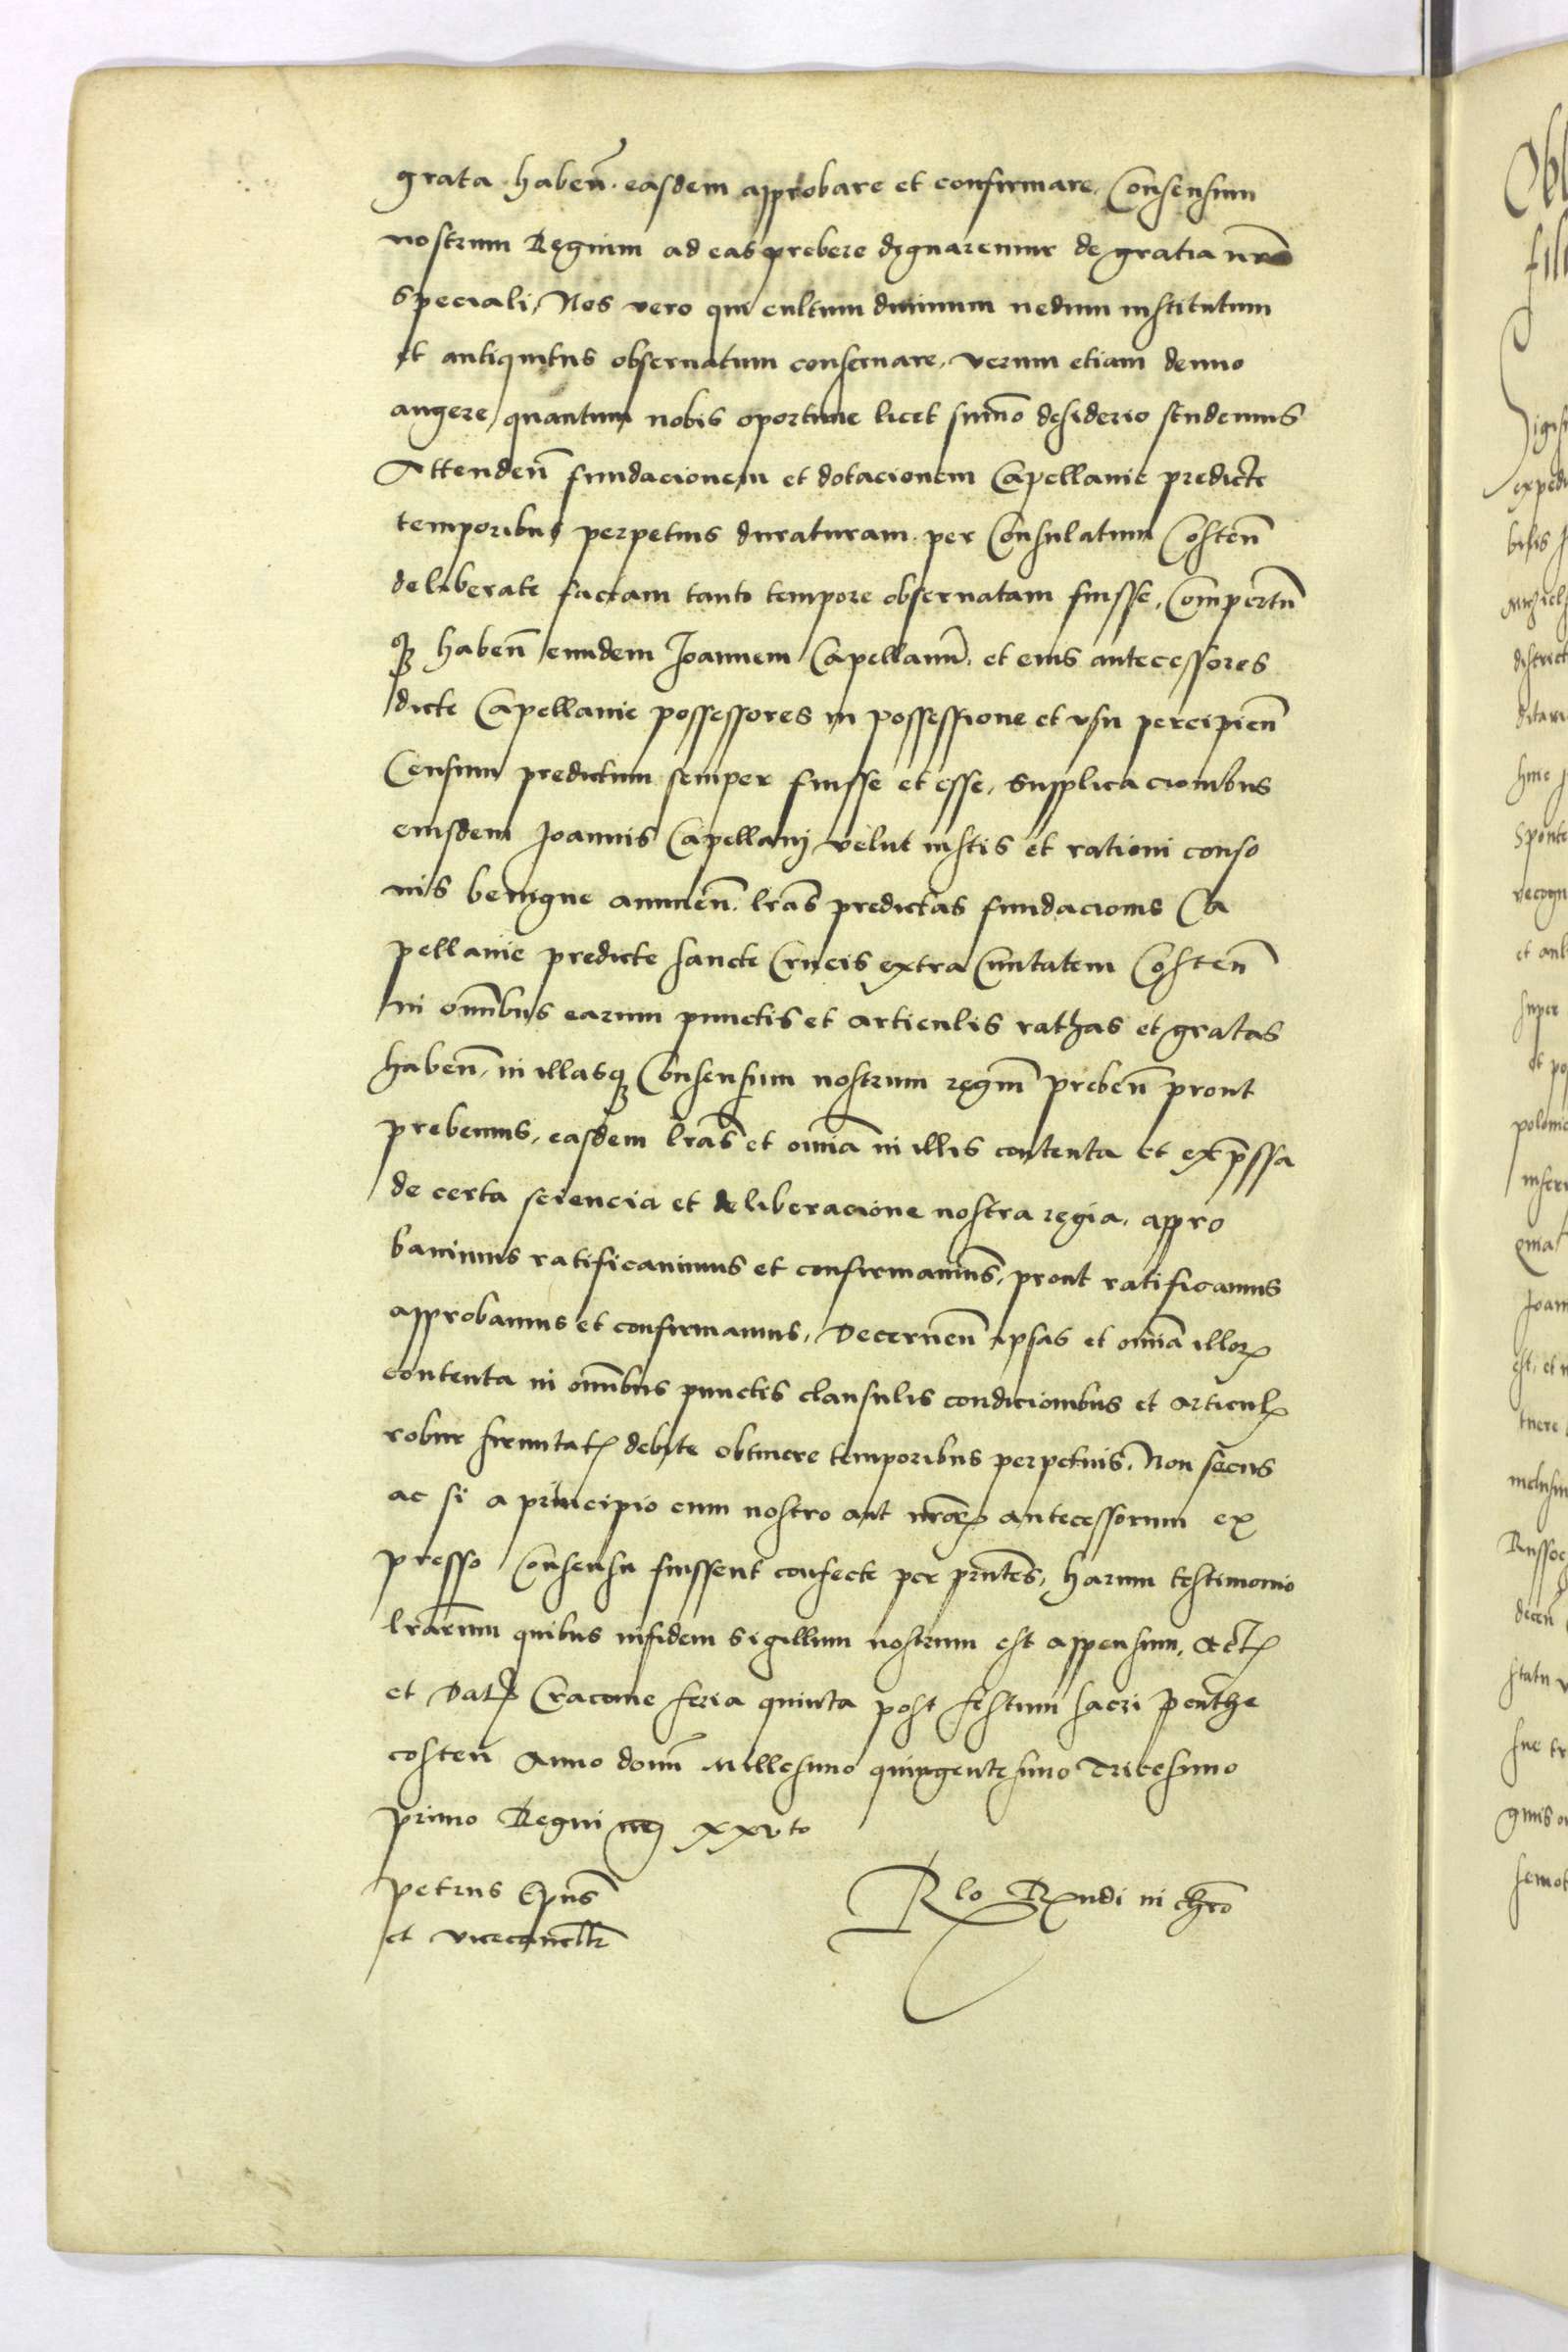 grata haben̄. easdem approbare et confirmare. Consensum
nostrum Regium ad eas prebere dignaremur de gratia nr̄a
speciali, Nos vero qui cultum diuinum nedum institutum
et antiquitus obseruatum conseruare, verum etiam denuo
augere, quantum nobis oportune licet sum̄o desiderio studemus
Attenden̄ fundacionem et dotacionem Capellanie predicte
temporibus perpetuis duraturam. per Consulatum Costen̄
deliberate factam tanto tempore obseruatam fuisse, Compertū
qȝ haben̄ eundem Joannem Capellanū. et eius antecessores
dicte Capellanie possessores in possessione et vsu percipien̄
Censum predictum semper fuisse et esse, supplicacionibus
eiusdem Joannis Capellanj velut iustis et rationi conso
nis benigne annuen̄. lr̄as predictas fundacionis Ca
pellanie predicte sancte Crucis extra Ciuitatem Costen̄
in om̄ibus earum punctis et articulis rathas et gratas
haben̄, in illasqȝ Consensum nostrum regiū preben̄ prout
prebemus, easdem lr̄as et om̄ia in illis contenta et exp̄ssa
de certa sciencia et deliberacione nostra regia, appro
bauimus ratificauimus et confirmauimus, prout ratificamus
approbamus et confirmamus, Decernen̄ ipsas et om̄ia illoꝝ
contenta in om̄ibus punctis clausulis condicionibus et articulꝭ
robur firmitatꝭ debite obtinere temporibus perpetuis, Non secus
ac si a principio cum nostro aut nr̄oꝝ antecessorum ex
presso Consensu fuissent confecte per pn̄tes, harum testimonio
lr̄arum quibus infidem sigillum nostrum est appensum, Actꝭ
et Datꝭ Cracouie feria quinta post festum sacri Penthe
costen̄ Anno domī Millesimo quingentesimo Tricesimo
primo Regni xxvto
petrus Ep̄us
et vicecancellr̄
Rlo Rndi in chrō